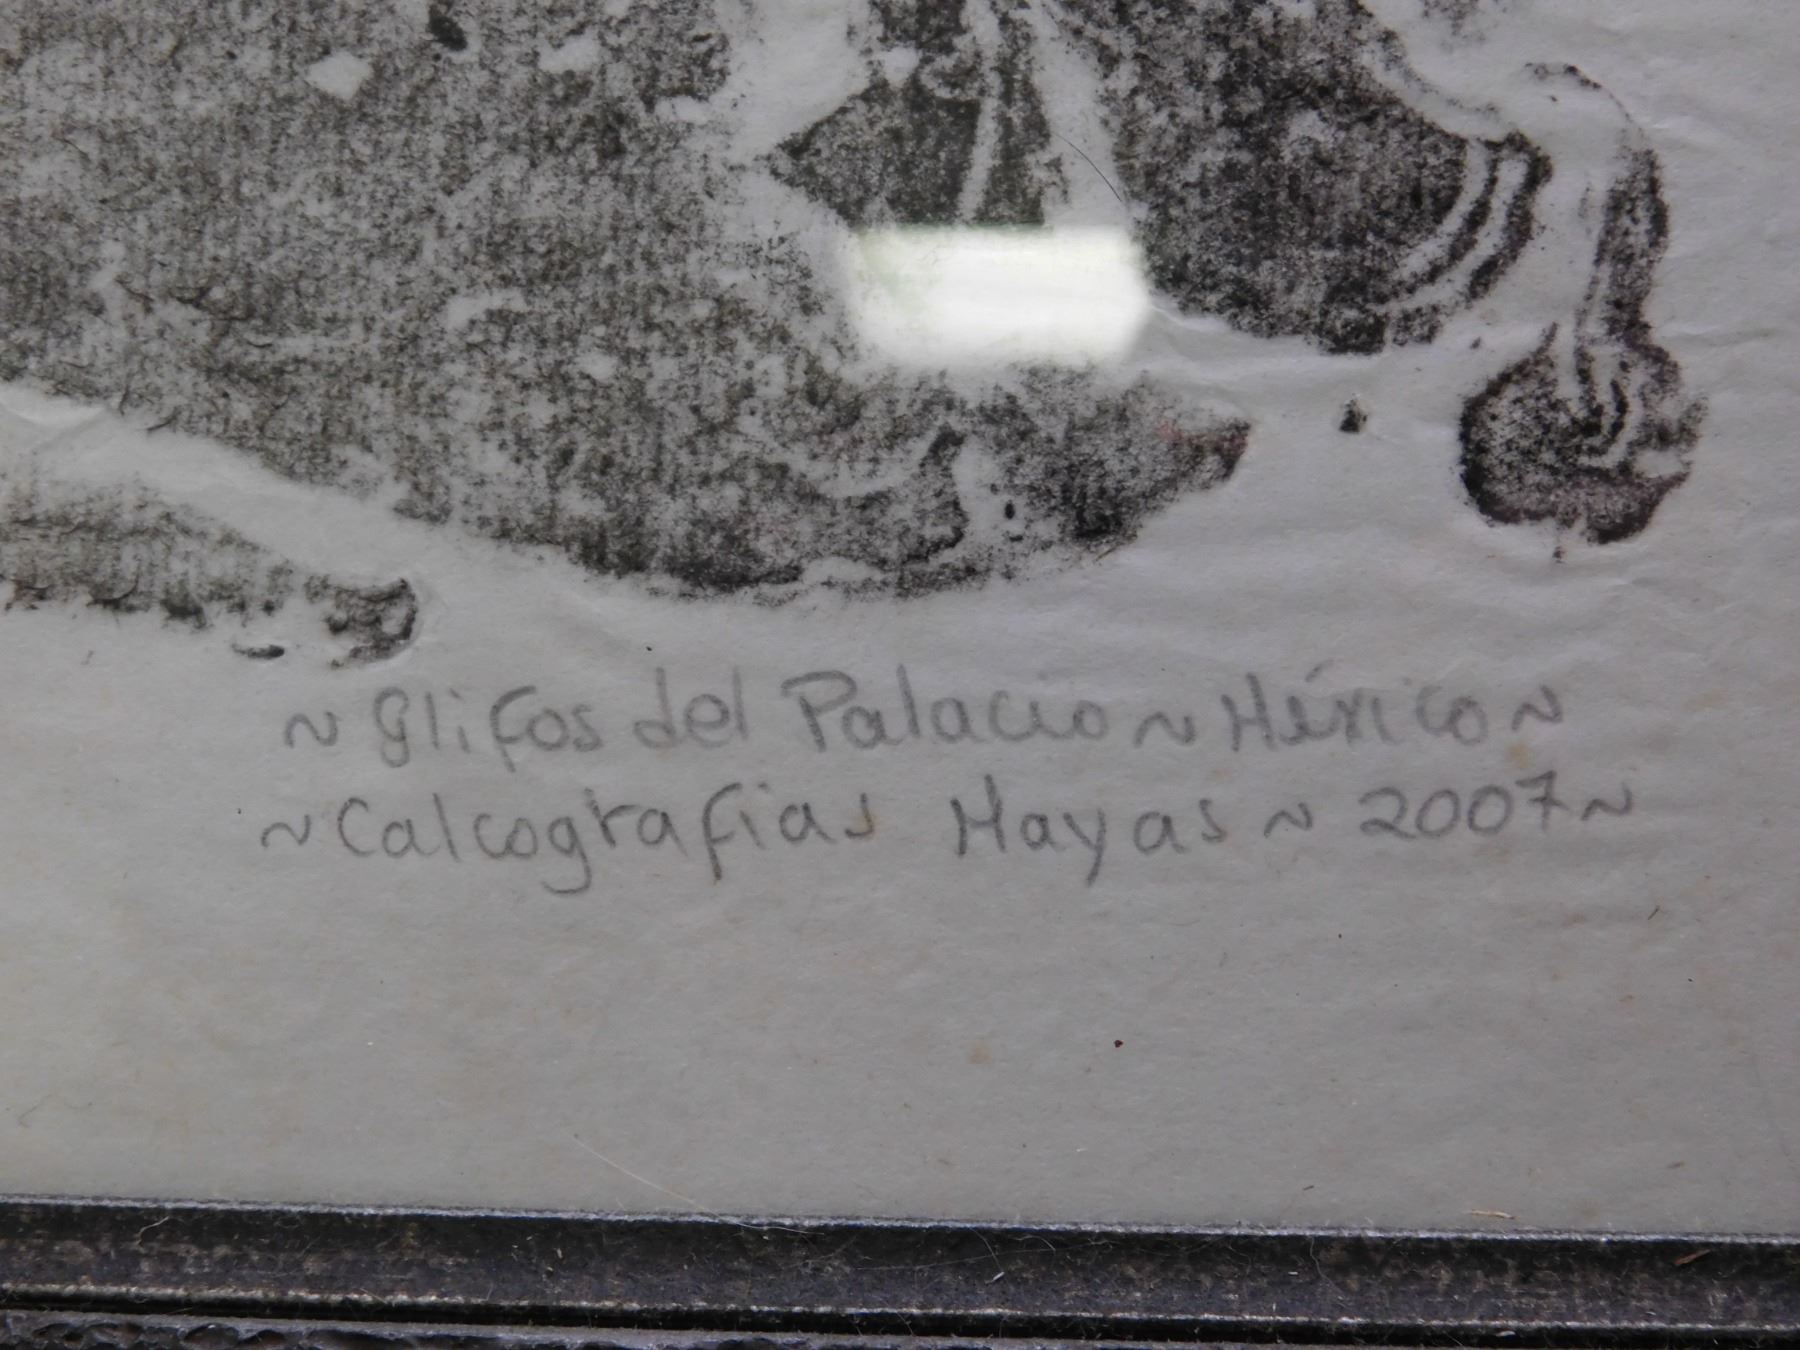 ~ Glifos del Palacio ~ México ~
~ Calcografias Mayas ~ 2007 ~